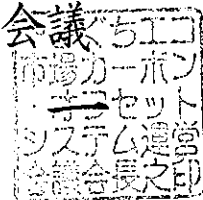 会議
ぐちエコ
市場カーボン
・オフセット
システム運営
会議会長之印